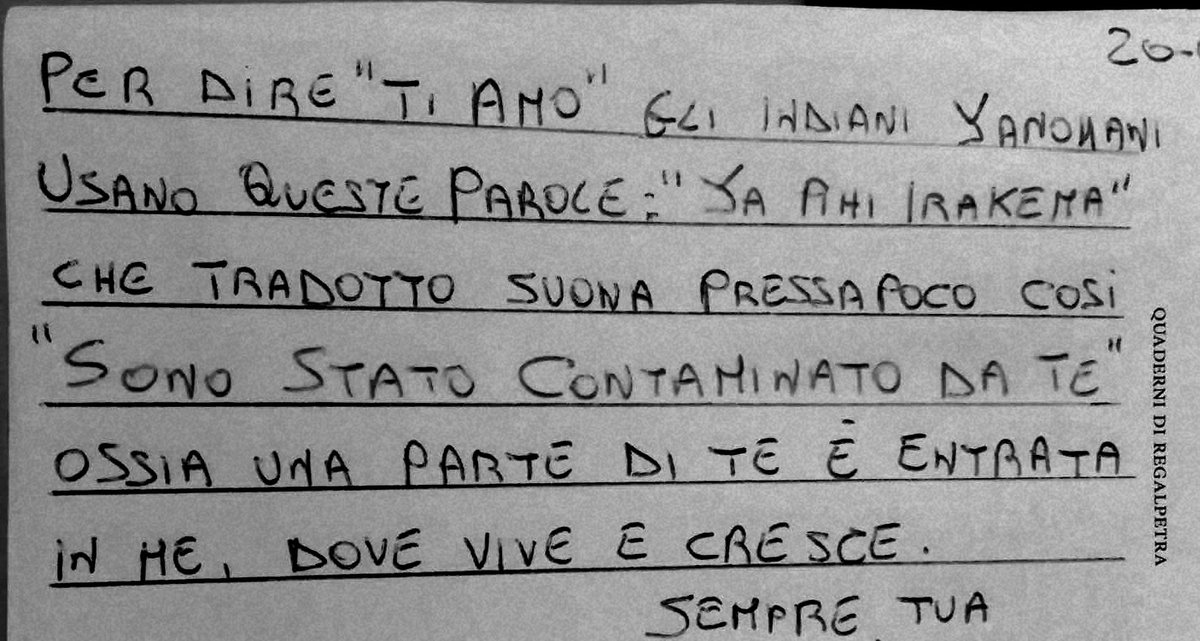 20-
PER DIRE "TI AMO" GLI INDIANI YANOMANI
USANO QUESTE PAROLE: "YA AHI IRAKEMA"
CHE TRADOTTO SUONA PRESSAPOCO COSI
"SONO STATO CONTAMINATO DA TE"
OSSIA UNA PARTE DI TE È ENTRATA
IN ME, DOVE VIVE E CRESCE.
SEMPRE TUA
QUADERNI DI REGALPETRA